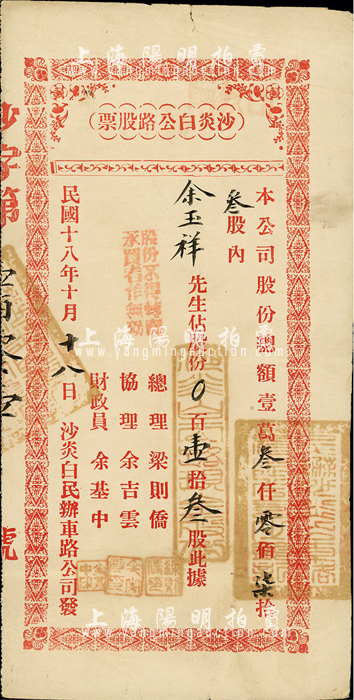 上海陽明拍賣
（沙炎白公路股票）
本公司股份總額壹萬叁仟零佰柒拾
叁股內
余玉祥先生佔股份0百壹拾叁股此據
總理 梁則僑
協理 余吉雲
財政員 余基中
民國十八年十月十八日 沙炎白民辦車路公司發
沙字第
號
上海陽明拍賣
www.yangmingauction.com
上海陽明拍賣